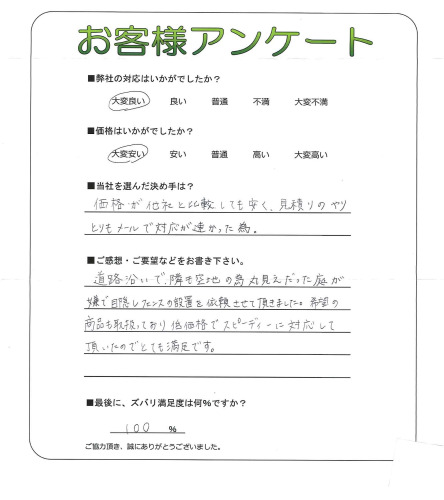 お客様アンケート
■弊社の対応はいかがでしたか？
大変良い 良い 普通 不満 大変不満
■価格はいかがでしたか？
大変安い 安い 普通 高い 大変高い
■当社を選んだ決め手は？
価格が他社と比較しても安く、見積りのやり
とりもメールで対応が速かった為。
■ご感想・ご要望などをお書き下さい。
道路沿いで、隣も空地の為丸見えだった庭が
嫌で目隠しフェンスの設置を依頼させて頂きました。希望の
商品も取扱っており低価格でスピーディーに対応して
頂いたのでとても満足です。
■最後に、ズバリ満足度は何%ですか？
100 %
ご協力頂き、誠にありがとうございました。